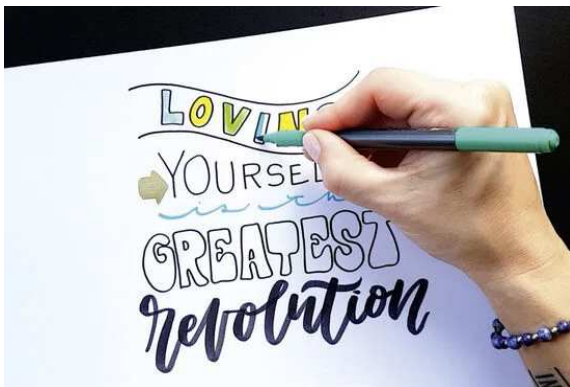 LOVING
YOURSELF
is the
GREATEST
revolution